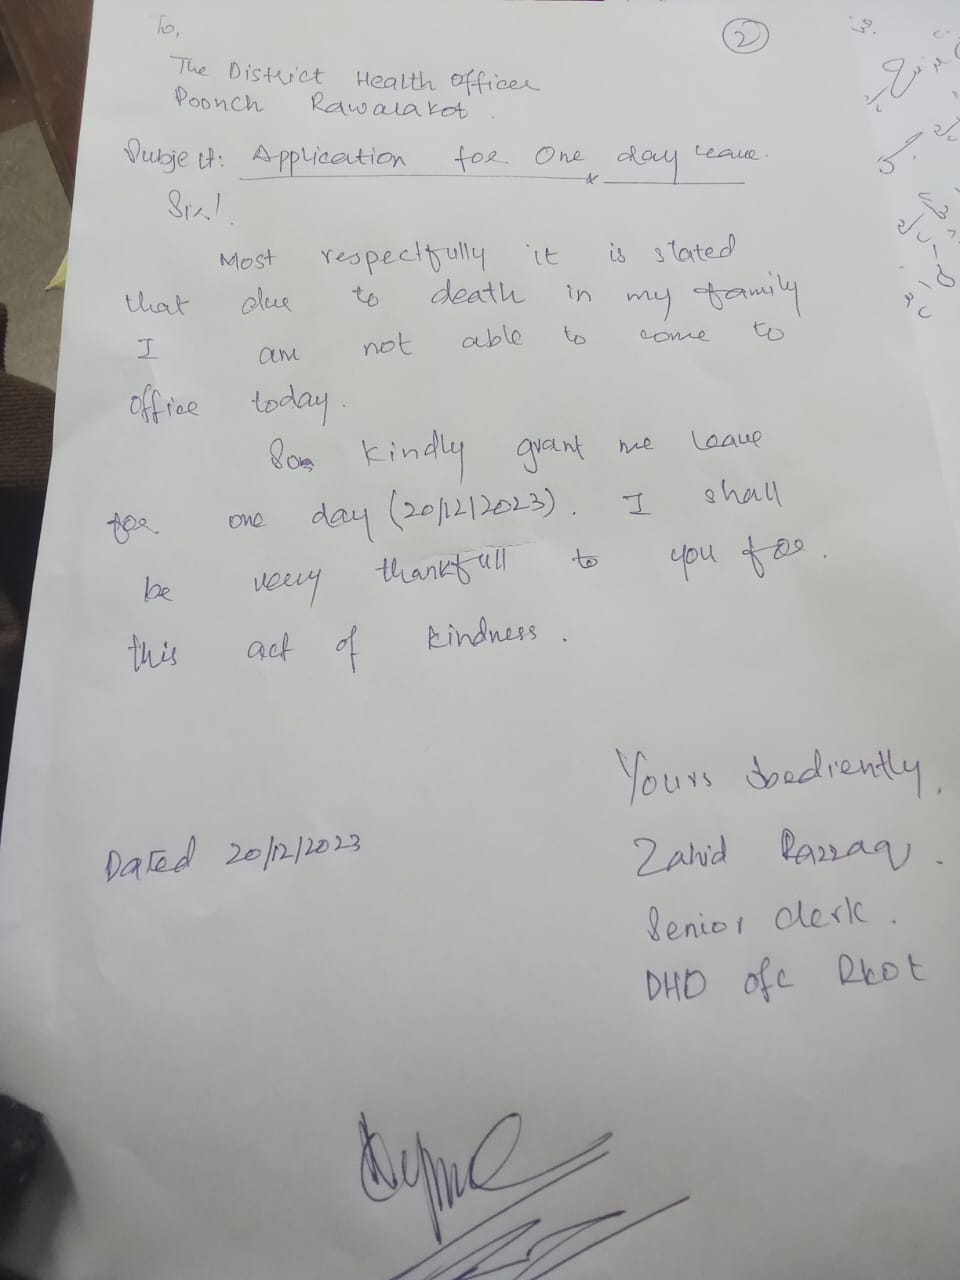 To,
2
The District Health Officer
Poonch Rawalakot.
Subject: Application for One day leave.
Sir!
Most respectfully it is stated
that due to death in my family
I am not able to come to
office today.
So kindly grant me leave
for one day (20/12/2023). I shall
be very thankfull to you for.
this act of kindness.
Yours obediently,
Dated 20/12/2023
Zahid Razzaq.
Senior clerk.
DHO ofc Rkot